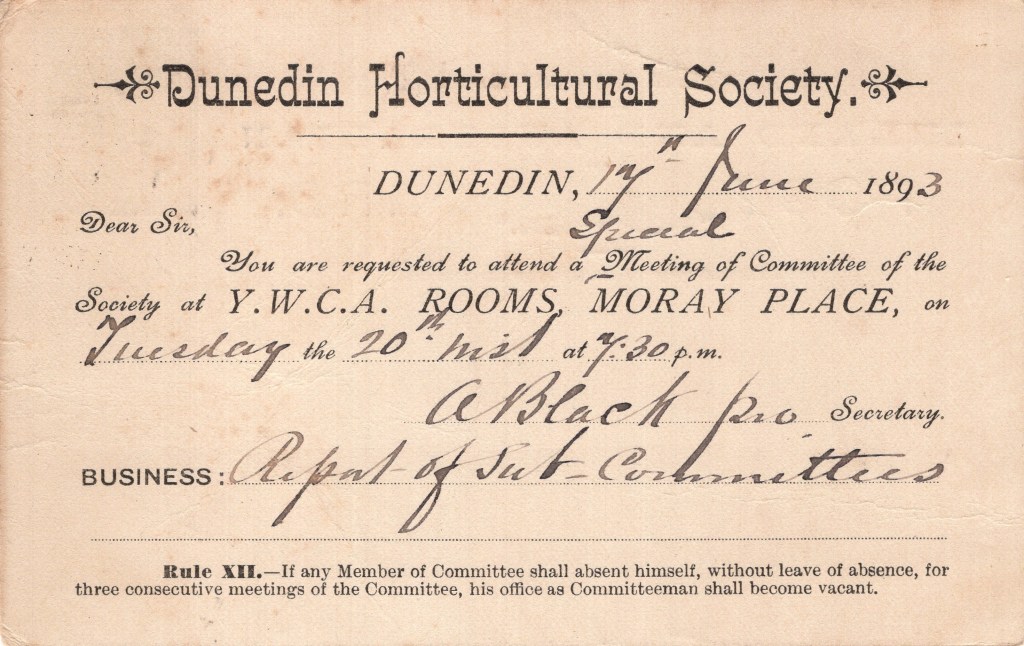 Dunedin Horticultural Society.
DUNEDIN, 17th June 1893
Dear Sir,
Special
You are requested to attend a Meeting of Committee of the
Society at Y.W.C.A. ROOMS, MORAY PLACE, on
Tuesday the 20th inst at 7.30 p.m.
A Black pro Secretary.
BUSINESS: Report of Sub-Committees
Rule XII.—If any Member of Committee shall absent himself, without leave of absence, for
three consecutive meetings of the Committee, his office as Committeeman shall become vacant.